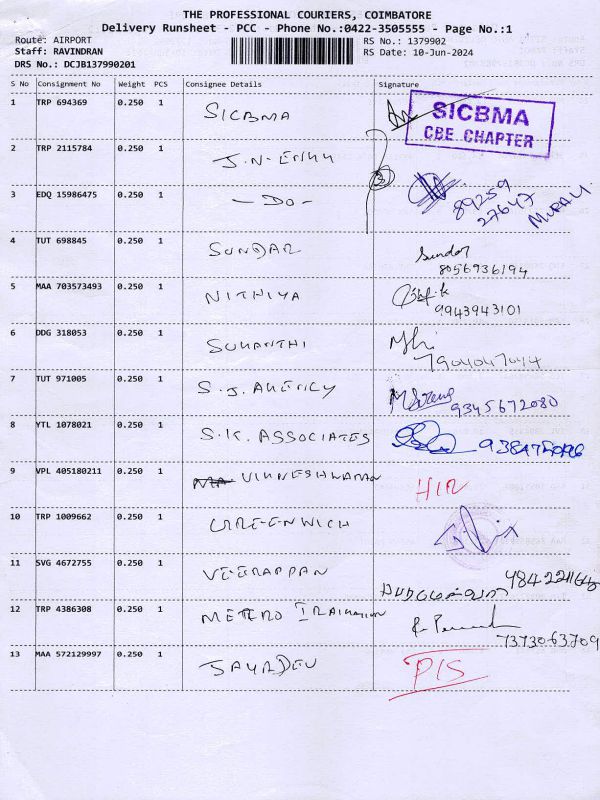 THE PROFESSIONAL COURIERS, COIMBATORE
Delivery Runsheet - PCC - Phone No.:0422-3505555 - Page No.:1
Route: AIRPORT RS No.: 1379902
Staff: RAVINDRAN RS Date: 10-Jun-2024
DRS No.: DCJB137990201
S No Consignment No Weight PCS Consignee Details Signature
1 TRP 694369 0.250 1 SICBMA SICBMA CBE. CHAPTER
2 TRP 2115784 0.250 1
3 EDQ 15986475 0.250 1 - DO - 89259 27647 MURALI
4 TUT 698845 0.250 1 SUNDAR Sundar 8056936194
5 MAA 703573493 0.250 1 NITHIYA 9943943101
6 DDG 318053 0.250 1 SUMANTHI 7904047044
7 TUT 971005 0.250 1 S.J. AGENCY 9345672080
8 YTL 1078021 0.250 1 S.K. ASSOCIATES
9 VPL 405180211 0.250 1 VIKNESHWARAN
10 TRP 1009662 0.250 1 GREENWICH
11 SVG 4672755 0.250 1 VEERAPPAN
12 TRP 4386308 0.250 1 7373063709
13 MAA 572129997 0.250 1 JAYADEV